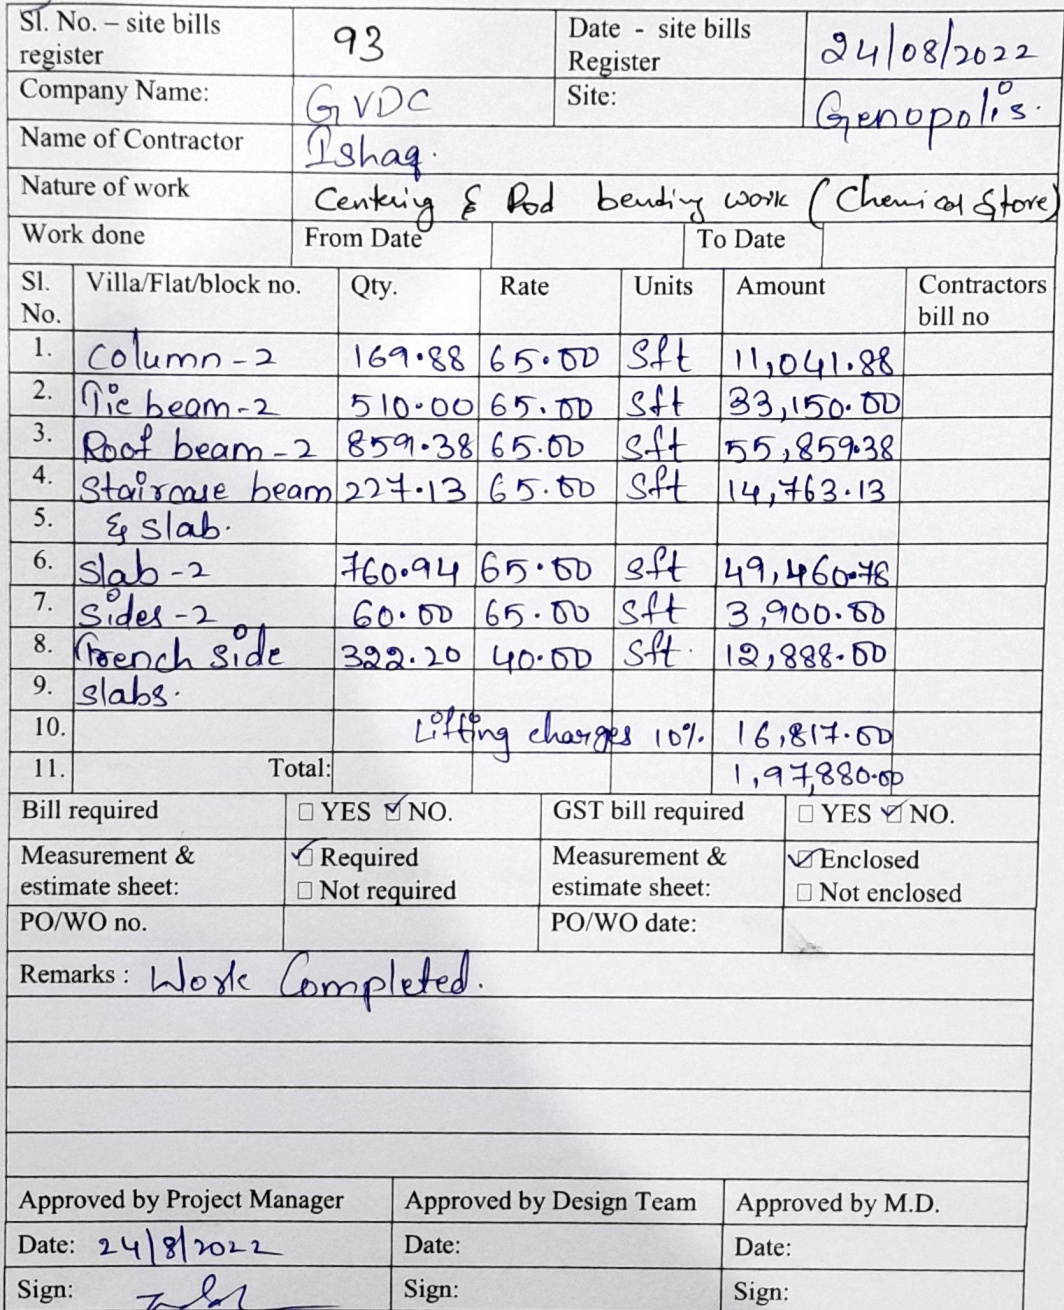 Sl. No. – site bills register 93 Date - site bills Register 24/08/2022
Company Name: GVDC Site: Genopolis.
Name of Contractor Ishaq.
Nature of work Centering & Rod bending work (Chemical Store)
Work done From Date To Date
Sl. No. Villa/Flat/block no. Qty. Rate Units Amount Contractors bill no
1. Column-2 169.88 65.00 Sft 11,041.88
2. Tie beam-2 510.00 65.00 Sft 33,150.00
3. Roof beam-2 859.38 65.00 Sft 55,859.38
4. Staircase beam 227.13 65.00 Sft 14,763.13
5. & slab.
6. Slab-2 760.94 65.00 Sft 49,460.78
7. Sides-2 60.00 65.00 Sft 3,900.00
8. Trench side 322.20 40.00 Sft. 12,888.00
9. slabs.
10. Lifting charges 10% 16,817.00
11. Total: 1,97,880.00
Bill required ☐ YES ☑ NO. GST bill required ☐ YES ☑ NO.
Measurement & estimate sheet: ☑ Required ☐ Not required Measurement & estimate sheet: ☑ Enclosed ☐ Not enclosed
PO/WO no. PO/WO date:
Remarks : Work Completed.
Approved by Project Manager Approved by Design Team Approved by M.D.
Date: 24/8/2022 Date: Date:
Sign: Sign: Sign: